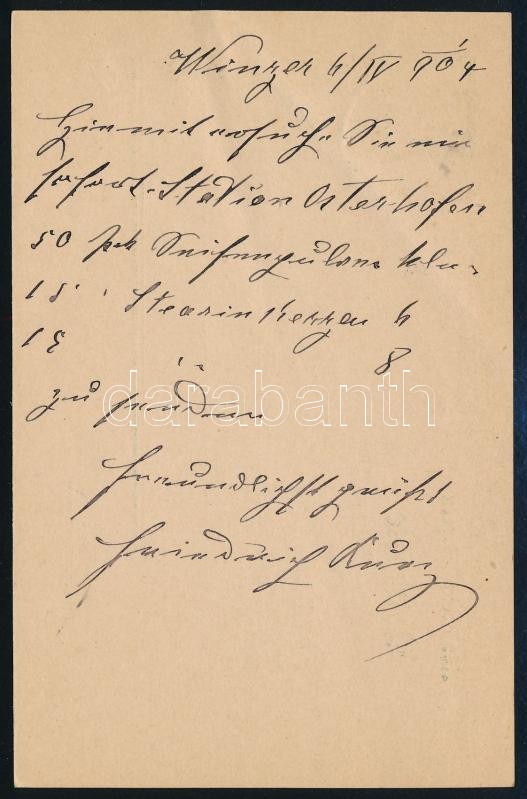 Winzer 6/IV 904
Hiermit ersuche Sie mir
sofort Station Osterhofen
50 Pck Seifenpulver kln.
15 " Stearin Kerzen 6
15 " " 8
zu senden
freundlichst grüßt
Friedrich Kurz
darabanth